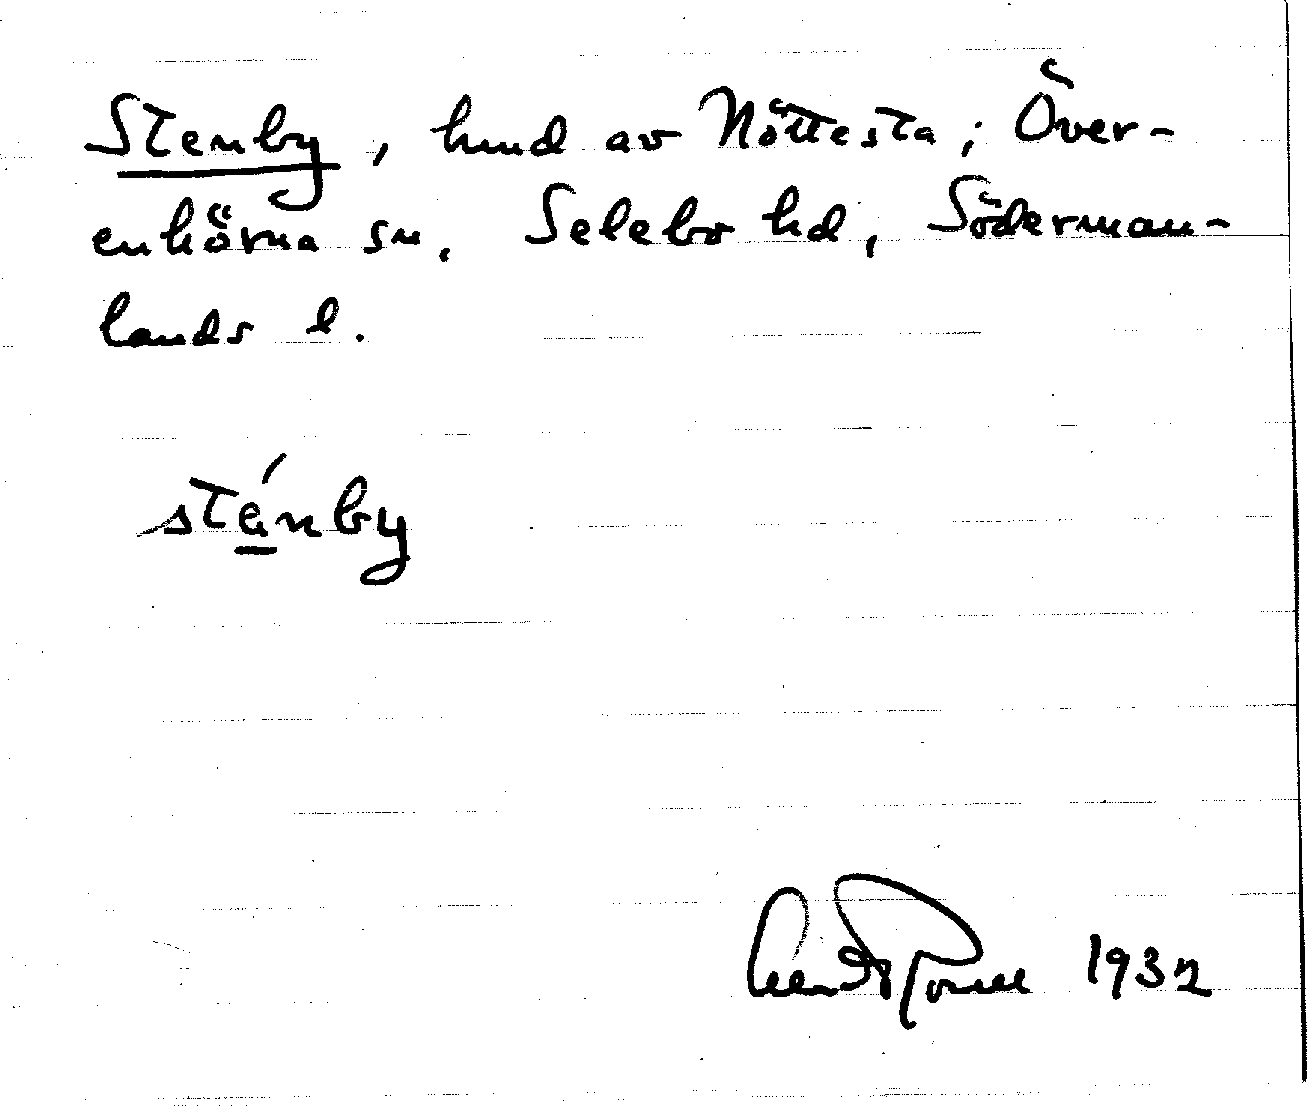 Stenby, hmd av Nöttesta; Över-
enhörna sn, Selebo hd, Söderman-
lands l.
sténby
1932